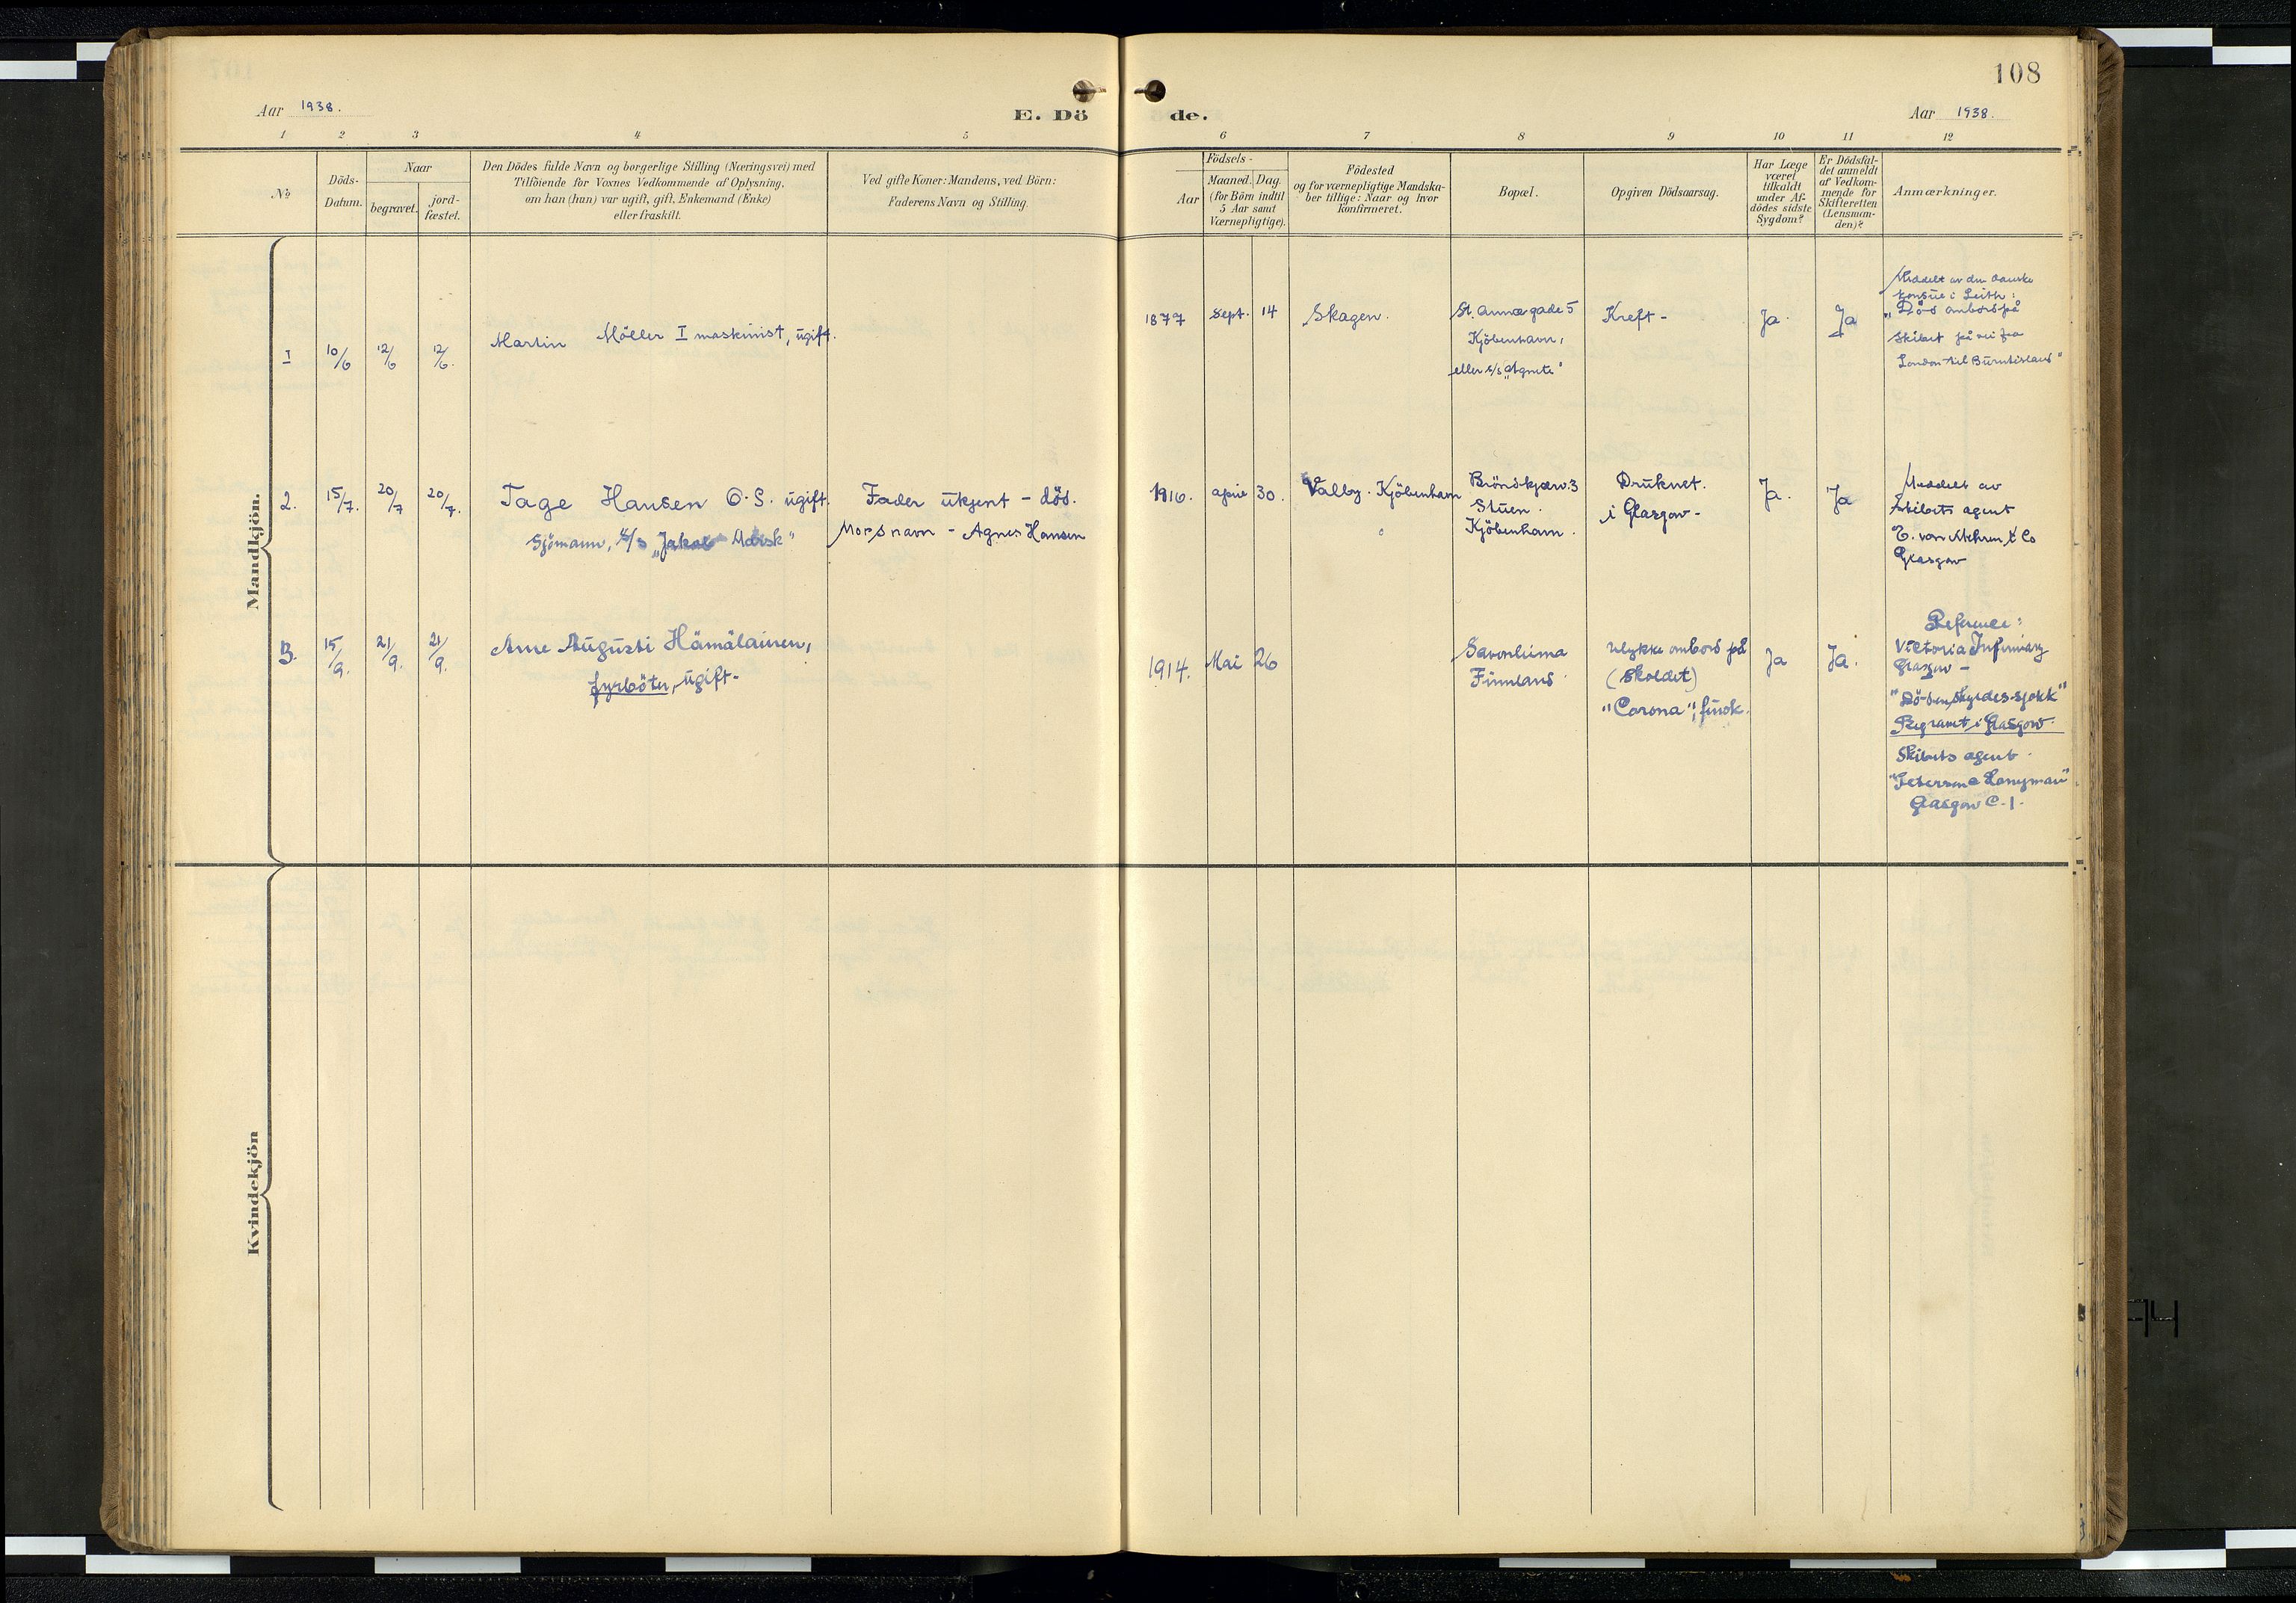 108
Aar 1938.
E. Dö
de.
Aar 1938.
1 2 3 4 5 6 7 8 9 10 11 12
No
Döds-
Datum.
Naar
begravet.
jord-
fæstet.
Den Dödes fulde Navn og borgerlige Stilling (Næringsvei) med
Tilföiende for Voxnes Vedkommende af Oplysning,
om han (hun) var ugift, gift, Enkemand (Enke)
eller fraskilt.
Ved gifte Koner: Mandens, ved Börn:
Faderens Navn og Stilling.
Födsels-
Aar
Maaned. Dag.
(for Börn indtil
5 Aar samt
Værnepligtige).
Födested
og for værnepligtige Mandska-
ber tillige: Naar og hvor
konfirmeret.
Bopæl.
Opgiven Dödsaarsag.
Har Læge
været
tilkaldt
under Af-
dödes sidste
Sygdom?
Er Dödsfal-
det anmeldt
af Vedkom-
mende for
Skifteretten
(Lensman-
den)?
Anmærkninger.
Mandkjön.
I 10/6 12/6 12/6.
Martin Möller I maskinist, ugift.
1877 Sept. 14
Skagen.
St. Annægade 5
Kjöbenhavn,
eller s/s "Agnete"
Kreft -
Ja
Ja
Meddelt av den danske
konsul i Leith:
"Död ombord på
Skibet på vei fra
London til Burntisland"
2. 15/7. 20/7 20/7.
Tage Hansen O.S. ugift.
Sjömann, s/s "Jakob Mærsk"
Fader ukjent - död.
Mors navn - Agnes Hansen
1916. april 30.
Valby. Kjöbenhavn
3
Stuen.
Kjöbenhavn.
Druknet.
i Glasgow -
Ja.
Ja
Meddelt av
skibets agent
E. von & Co
Glasgow
3. 15/9. 21/9. 21/9.
Arne Augusti Hämäläinen,
fyrböter, ugift -
1914. Mai 26
Finnland
Ulykke ombord på
(skoldet)
"Corona", finsk.
Ja
Ja.
Reference:
Victoria Infirmary
Glasgow -
Begravet i Glasgow.
Skibets agent
Glasgow C.1.
Kvindekjön